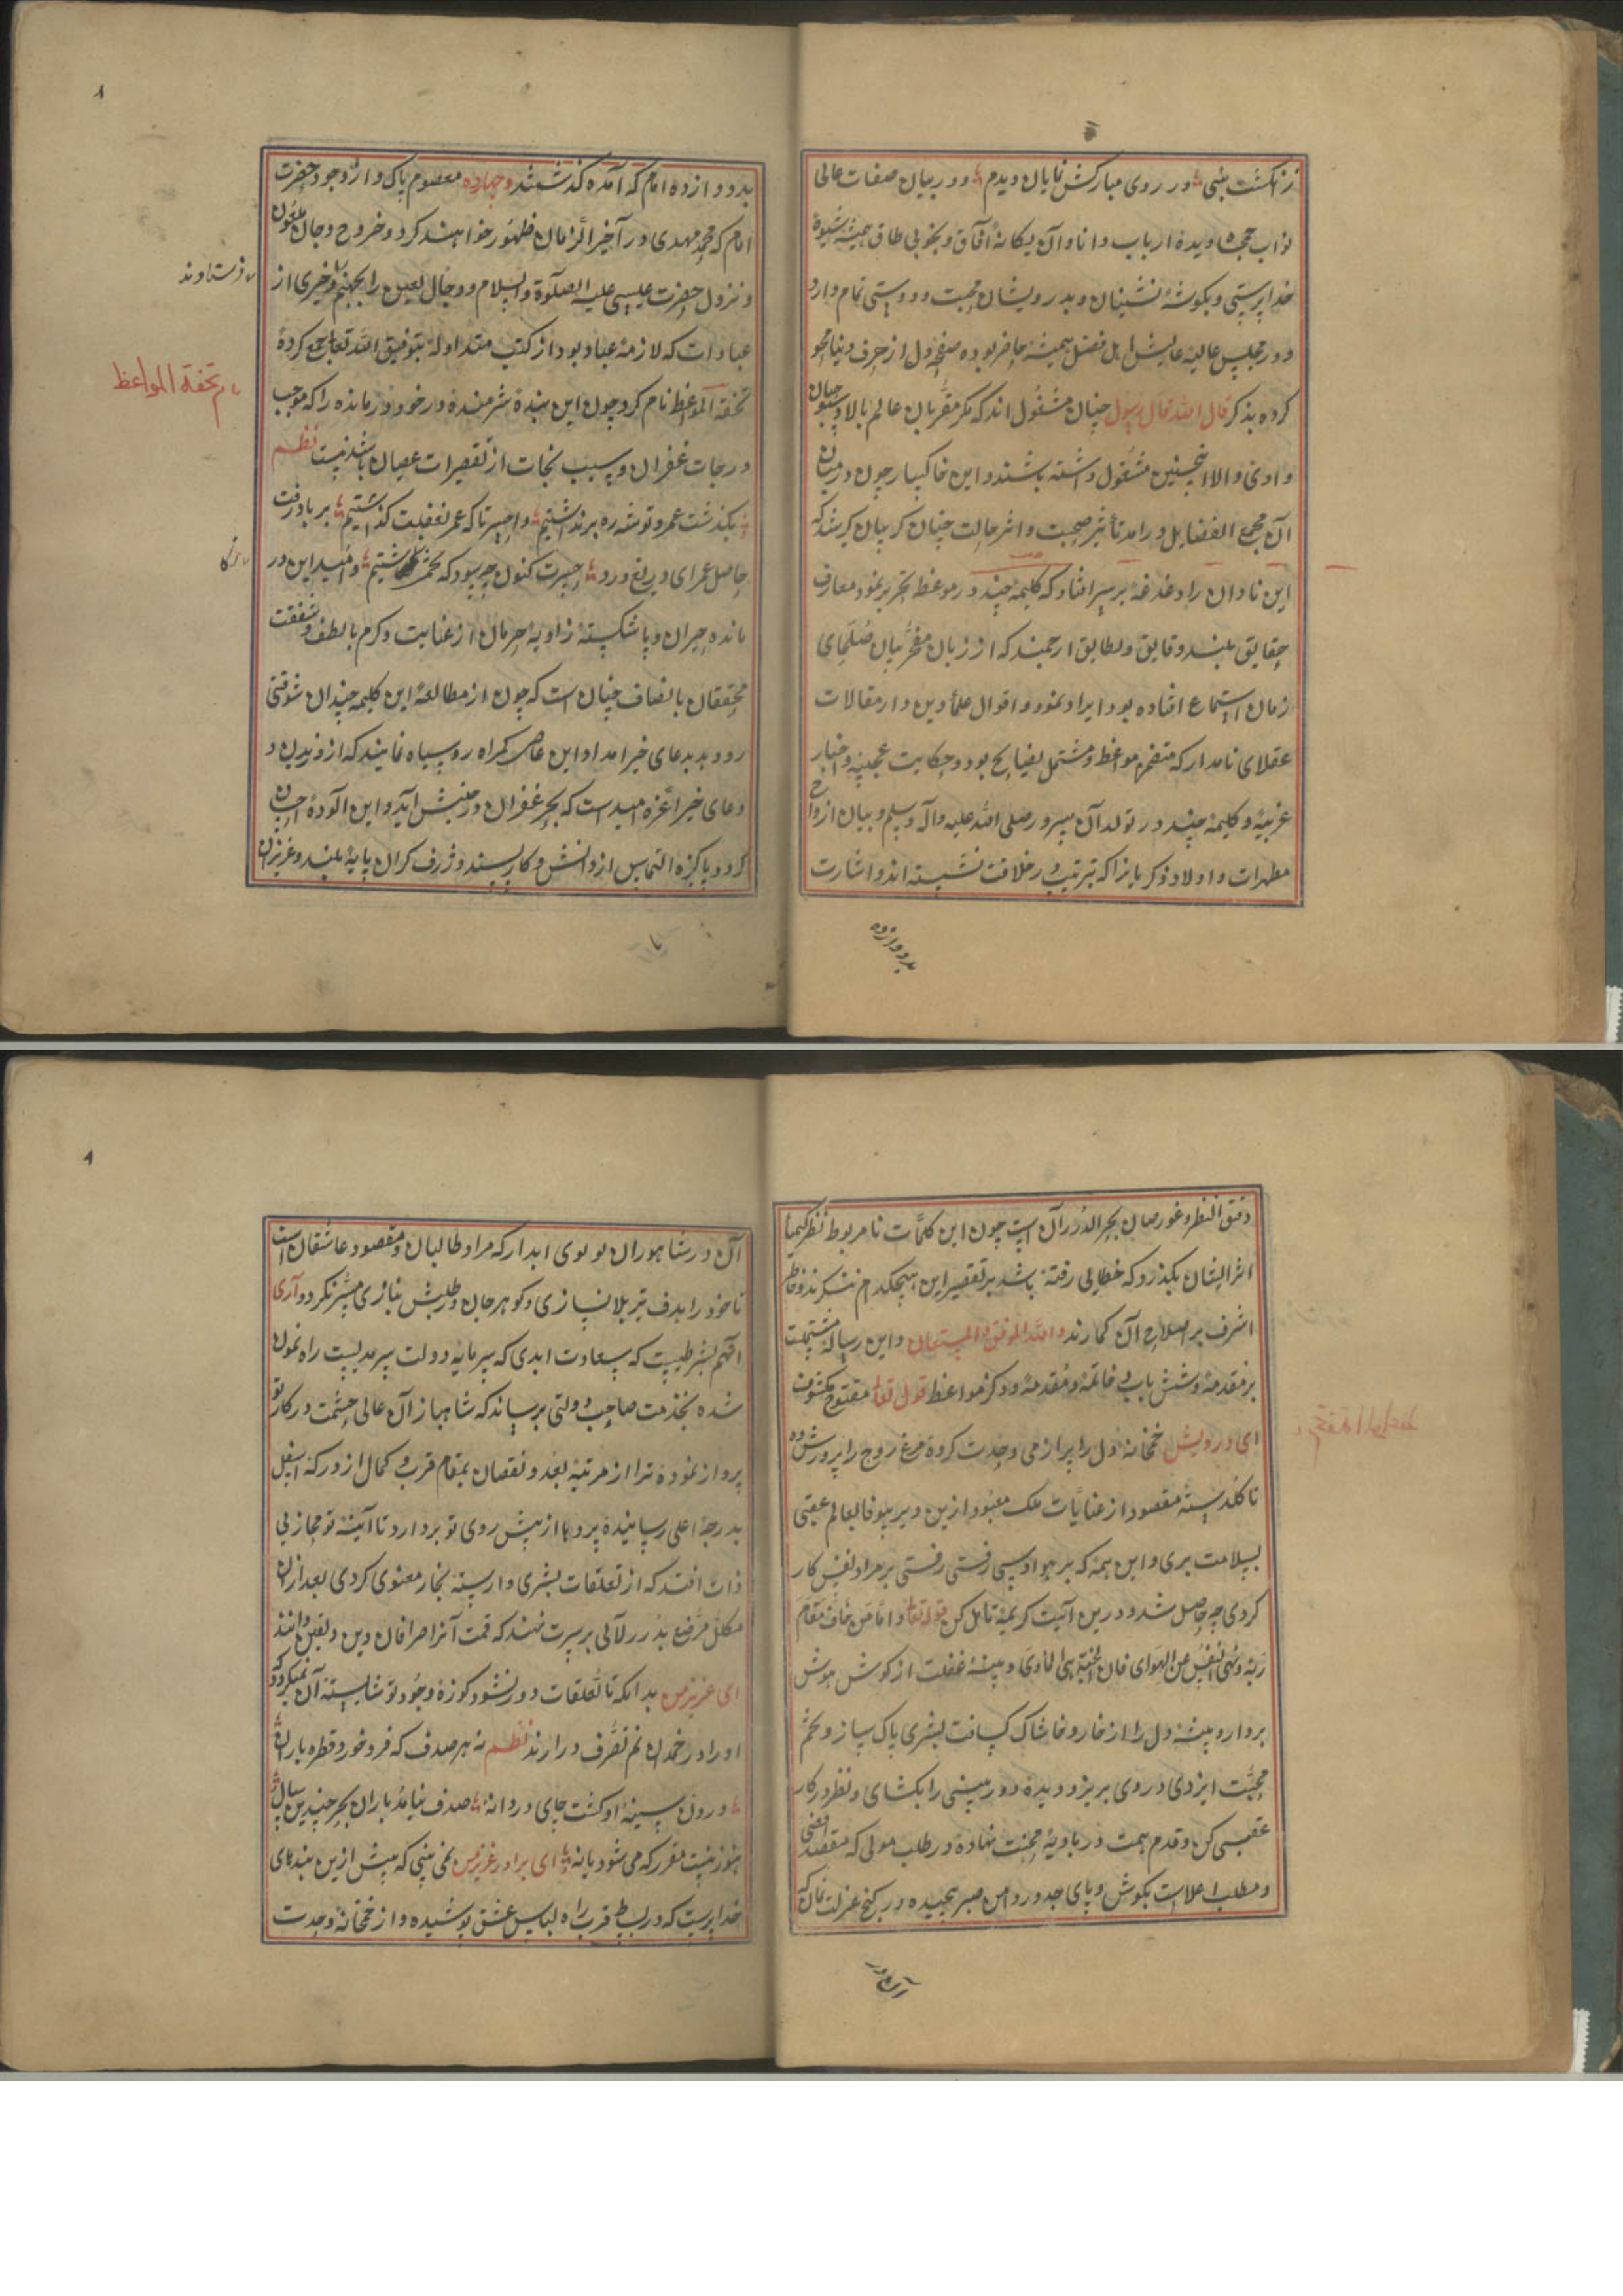 در روی مبارکش نمایان دیدم و در بیان صفات عالی
نواب دیده ارباب دانا و آن یکانهٔ آفاق و بخوبی طاق همیشه شیوهٔ
خداپرستی و بکوشهٔ نشینان و بدرویشان محبت و دوستی تمام دارد
و در مجلس عالیه اهل فضل همیشه حاضر بوده صفحهٔ دل از حرف دنیا محو
کرده بذکر قال الله قال رسول چنان مشغول اند که مکر مقربان عالم بالا
والا اینچنین مشغول داشته باشند و این خاکسار چون در میان
آن مجمع الفضایل درامد تأثیر صحبت و اثر حالت چنان کریبان کیر شد که
این نادان را دغدغهٔ بر سر افتاد که کلیمهٔ چند در موعظ تحریر نمود معارف
حقایق بلند و دقایق و لطایق ارجمند که از زبان صلحای
زمان استماع افتاده بود ایراد نمود و اقوال علماء دین دار مقالات
عقلای نامدار که متضمن مواعظ و مشتمل بود و حکایت عجیبه و اخبار
غریبهٔ و کلیمهٔ چند در تولد آن سرور صلی الله علیه وآله وسلم و بیان ازواج
مطهرات و اولاد و ذکر یارانکه ترتیب بر خلافت نشسته اند و اشارت
بدوازده
۸
بدوازده امام که آمده کذشتند و چهارده معصوم پاک و از وجود حضرت
امام که محمد مهدی در آخر الزمان ظهور خواهند کرد و خروج دجال ملعون
و نزول حضرت عیسی علیه الصلوة والسلام و دجال لعین را بجهنم و خبری از
فرستاوند
عبادات که لازمهٔ عباد بود از کتب متداوله بتوفیق الله تعالی جمع کرده
تحفة المواعظ نام کرد چون این بندهٔ شرمندهٔ در خود درمانده را که موجب
تحفة المواعظ
درجات غفران و سبب نجات از تقصیرات عصیان باشد نیست نظم
بکذشت عمر و توشهٔ ره برنداشتیم واحسرتا که عمر بغفلت کذاشتیم بر باد رفت
حاصل عمر ای دریغ و درد حسرت کنون چه سود که تخم نکاشتیم و امید این در
مانده حیران و پاشکسته زاویهٔ حرمان از عنایت و کرم با لطف و شفقت
محققان باانصاف چنان است که چون از مطالعهٔ این کلیمه چندان شوقی
رو دهد بدعای خیر امداد این عاصی کمراه رو سیاه نمایند که از
دعای خیر اعزه امید است که بحر غفران در جنبش آید و این آلودهٔ
کردد پاکیزه التماس از دانش و کارپسند و ژرف کران پایهٔ بلند و عزیزان
دقق النظر و غورصان بحر الدرر آن است چون این کلمات نامربوط نظر کیمیا
اثر ایشان بکذرد که خطایی رفته باشد بر تقصیر این هیچکدام ننکرند و خاطر
اشرف بر اصلاح آن کمارند والله الموفق والمستعان و این رساله مشتملست
بر مقدمهٔ و شش باب و خاتمهٔ و مقدمهٔ و ذکر مواعظ قول تعالی
ای درویش خمخانهٔ دل را پر از می وحدت کرده مرغ روح را پرورش ده
تا کلدستهٔ مقصود از عنایات ملک معبود ازین دیر بیوفا بعالم عقبی
بسلامت بری و این همه که بر هوا رفتی رفتی بر مراد نفس کار
کردی چه حاصل شد و درین آیت کریمهٔ تامل کن قوله تعالی و اما من خاف مقام
ربه ونهی النفس عن الهوای فان الجنة هی الماوی و پنبهٔ غفلت از کوش هوش
بردار و بیشهٔ دل را از خار و خاشاک کسافت بشری پاک ساز و تخم
محبت ایزدی در وی بریز و دیدهٔ دوربینی را بکشای و نظر در کار
عقبی کن و قدم همت در بادیهٔ محبت نهاده در طلب مولی که مقصد اقصی
و مطلب اعلاست بکوش و پای جد در دامن صبر پیچیده در کنج عزلت
۸
آن در شاهوران لولوی ابدار که مراد طالبان و مقصود عاشقان است
تا خود را هدف تیر بلا نسازی و کوهر جان در طلبش نبازی میسر نکردد آری
بشرطیست که سعادت ابدی که سرمایه دولت سرمدیست راه نمون
شده بخدمت صاحب دولتی برساند که شاهباز آن عالی حشمت در کار تو
پرواز نموده ترا از مرتبهٔ بعد و نقصان بمقام قرب و کمال از درکه اسفل
بدرجهٔ اعلی رساننده پردها از پیش روی تو بردارد تا آینهٔ تو
ذات افتد که از تعلقات بشری وارسته بخار معنوی کردی بعد ازان
مکلل مرفع بدرر لآلی بر سرت نهند که قیمت آنرا صرافان دین و یقین دانند
ای عزیز من بدانکه تا تعلقات دور نشود کوزهٔ وجود تو شایسته آن نمیکردد که
او را در خمدان نم تصرف درارند نظم نه هر صدف که فرو خورد قطرهٔ باران
درون سینهٔ او کشت جای دردانه صدف نیامد باران بحر چندین سال
هنوز نیست مقرر که می شود یا نه ای برادر عزیز من نمی بینی که پیش ازین بندهای
خداپرست که در بساط قرب راه لباس عشق پوشیده و از خمخانهٔ وحدت